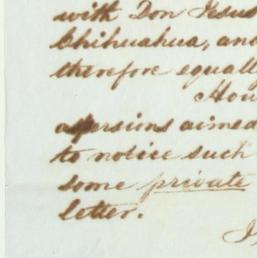 with Don Jesus
Chihuahua, and
therefore equall
How
aspersions aimed
to notice such
some private
letter.